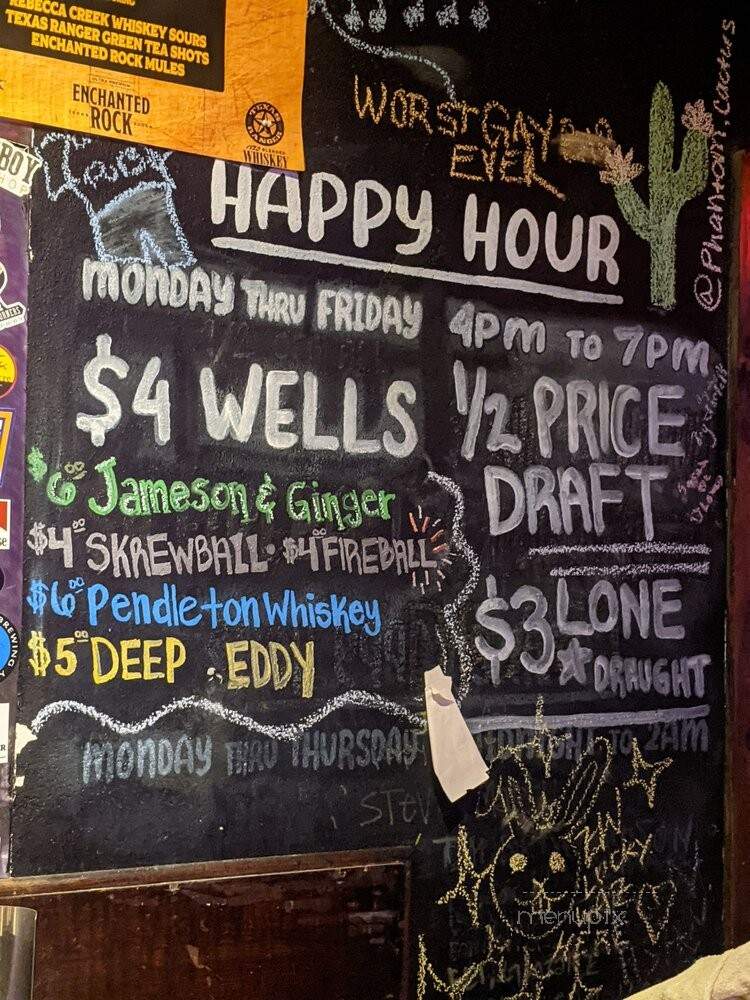 REBECCA CREEK WHISKEY SOURS
TEXAS RANGER GREEN TEA SHOTS
ENCHANTED ROCK MULES
ENCHANTED
ROCK
TEXAS
RANGER
WHISKEY
BOY
WORST GAY BAR
EVER
@Phantom.Cactus
HAPPY HOUR
MONDAY THRU FRIDAY
4PM TO 7PM
$4 WELLS
1/2 PRICE
DRAFT
$6.00 Jameson & Ginger
$4.00 SKREWBALL · $4.00 FIREBALL
$6.00 Pendleton Whiskey
$5.00 DEEP EDDY
$3 LONE
★ DRAUGHT
MONDAY THRU THURSDAY
TO 2AM
menupix